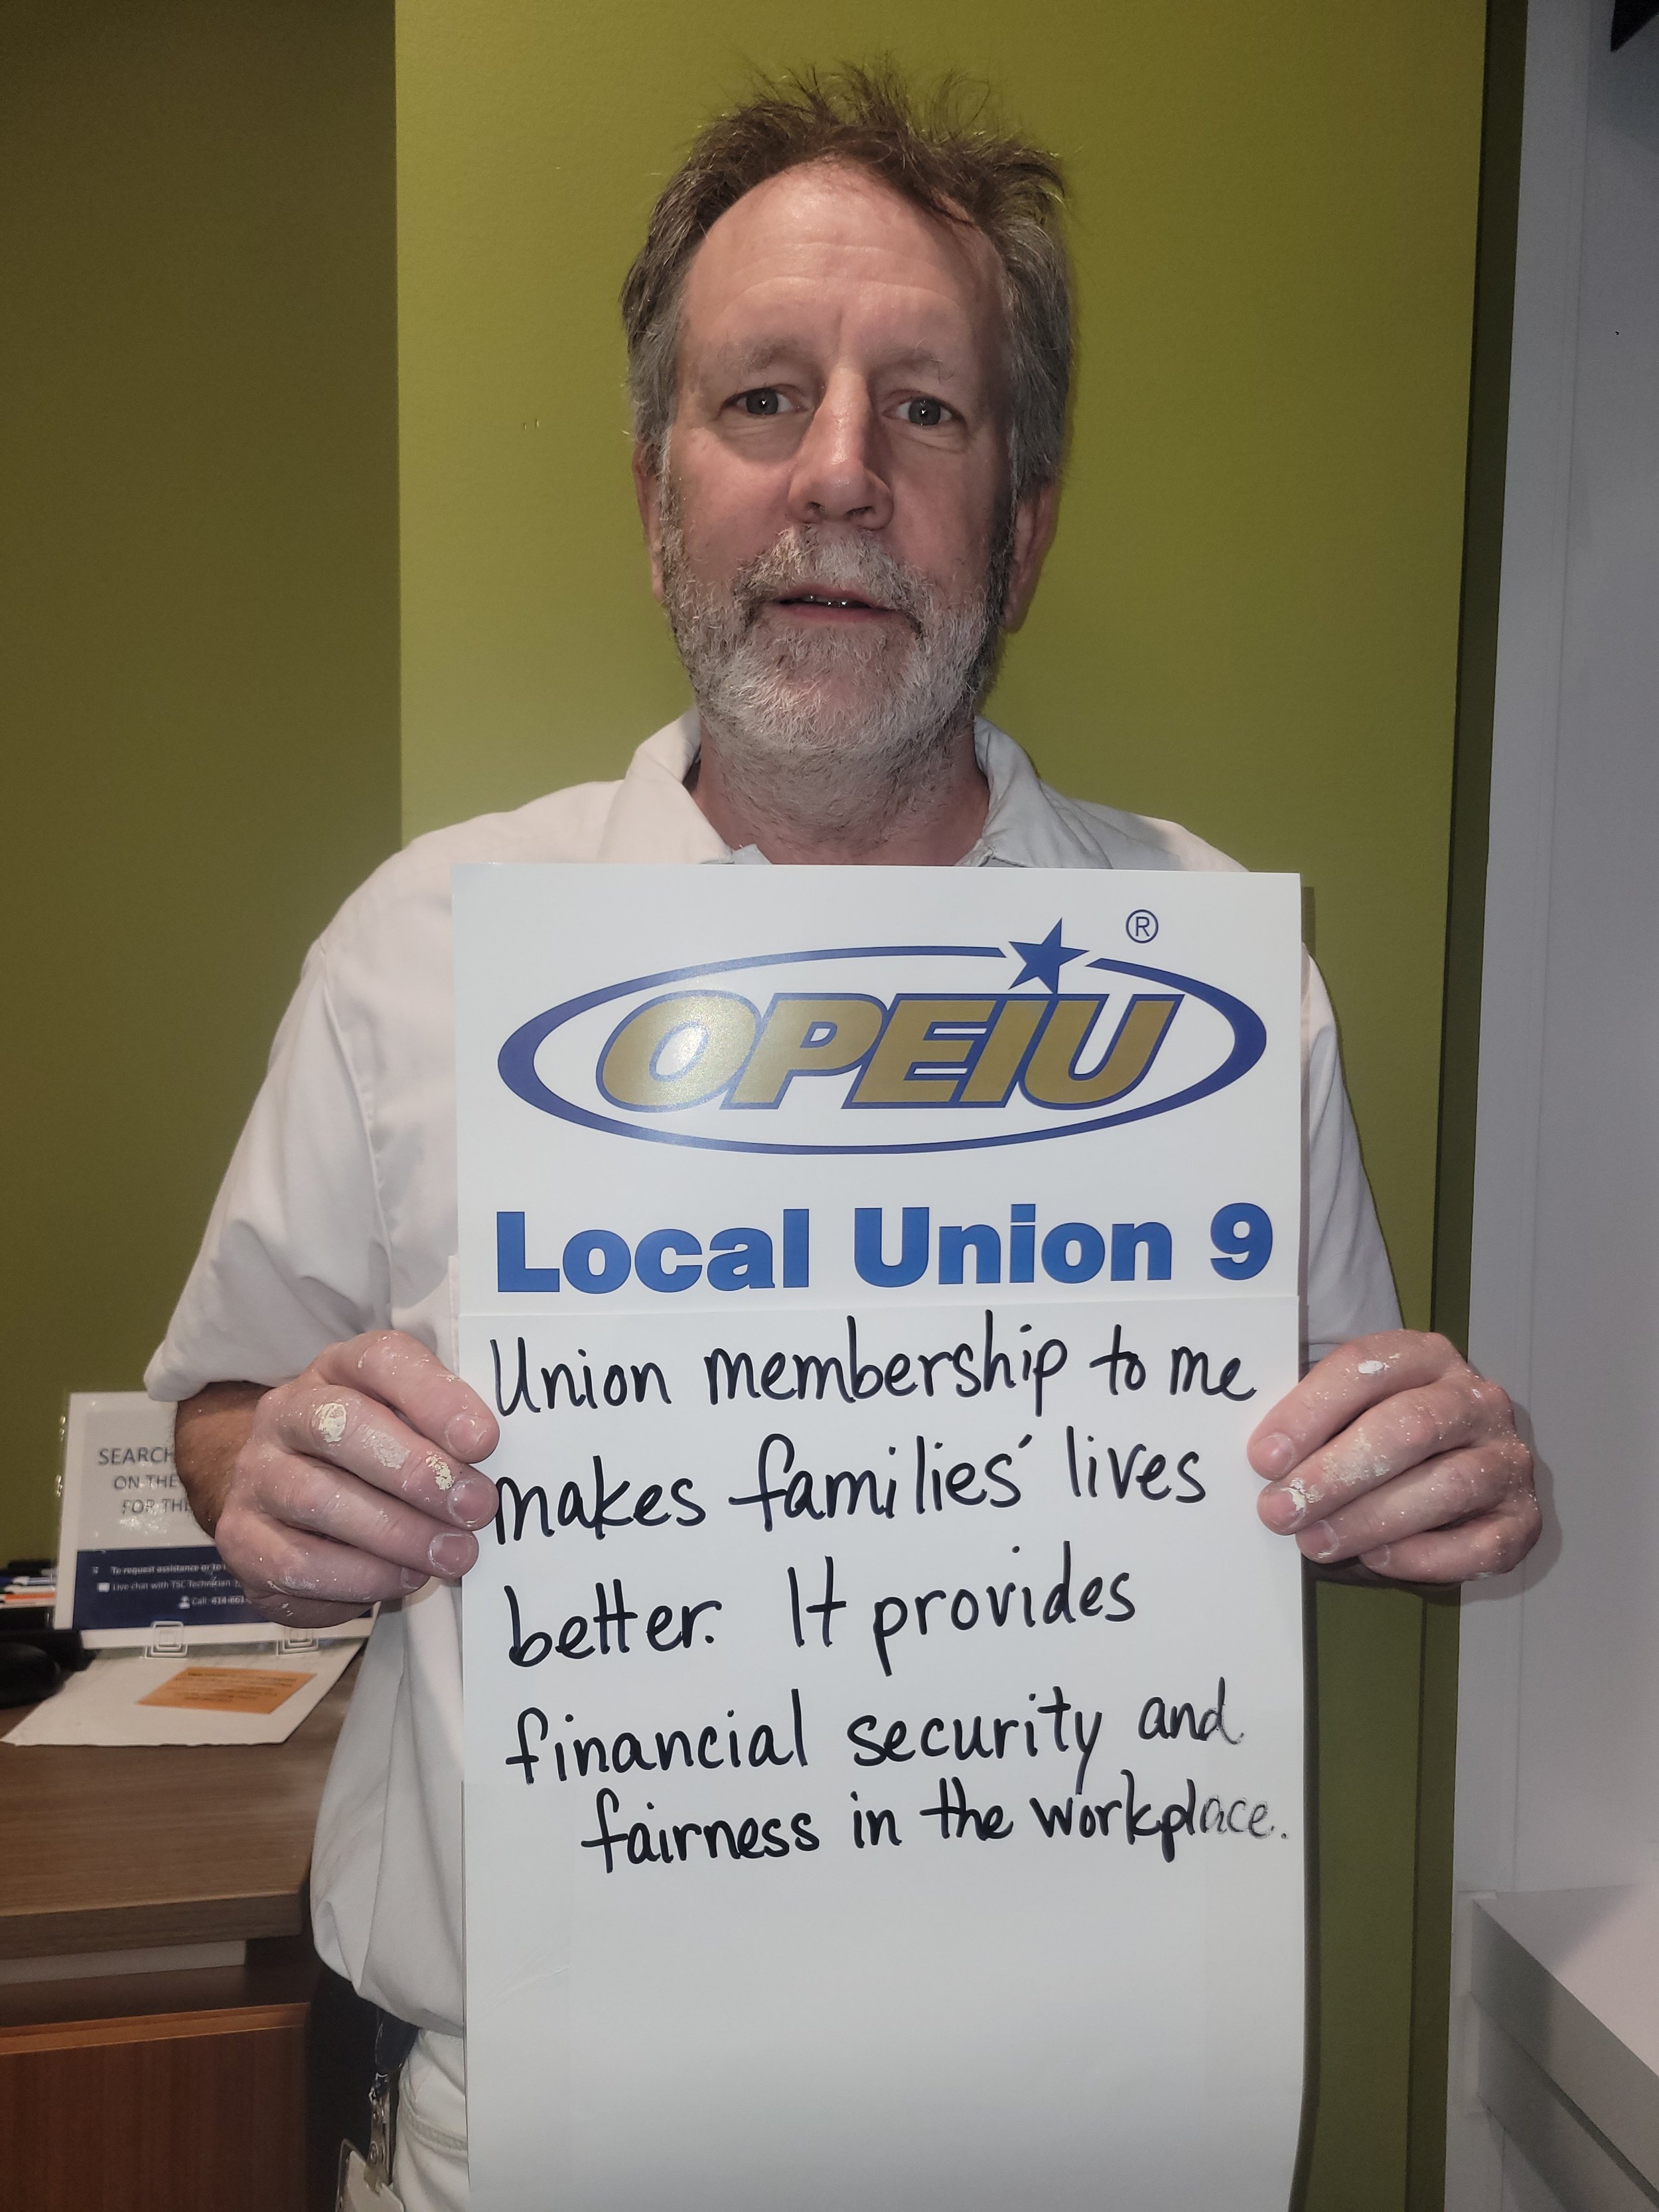 ®
OPEIU
Local Union 9
Union membership to me
makes families' lives
better. It provides
financial security and
fairness in the workplace.
SEARCH
ON THE
FOR THE
To request assistance or to
Live chat with TSC Technician
Call: